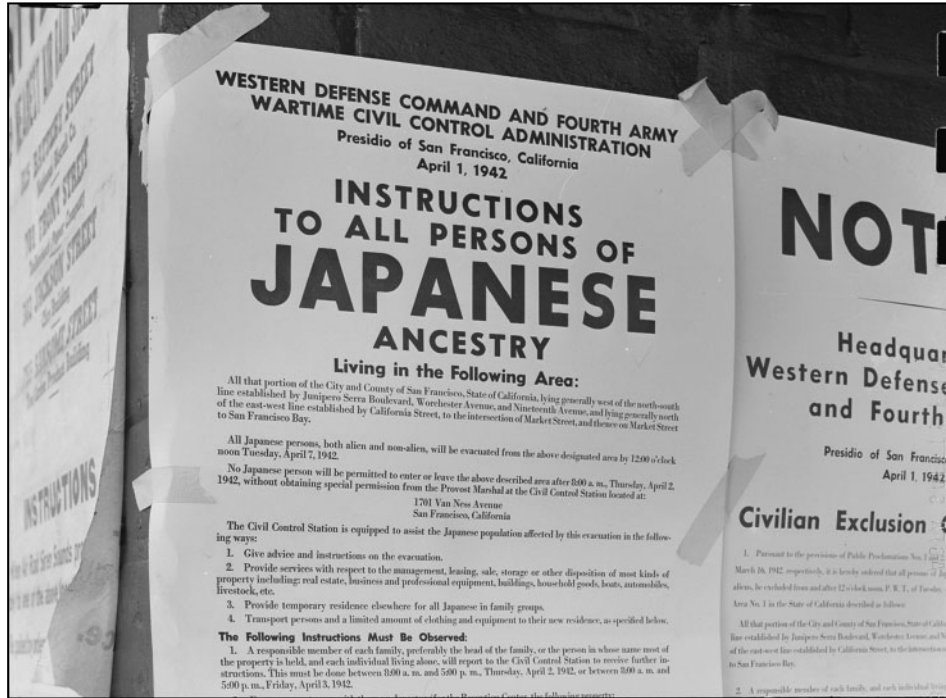 WESTERN DEFENSE COMMAND AND FOURTH ARMY
WARTIME CIVIL CONTROL ADMINISTRATION
Presidio of San Francisco, California
April 1, 1942
INSTRUCTIONS
TO ALL PERSONS OF
JAPANESE
ANCESTRY
Living in the Following Area:
All that portion of the City and County of San Francisco, State of California, lying generally west of the north-south
line established by Junipero Serra Boulevard, Worchester Avenue, and Nineteenth Avenue, and lying generally north
of the east-west line established by California Street, to the intersection of Market Street, and thence on Market Street
to San Francisco Bay.
All Japanese persons, both alien and non-alien, will be evacuated from the above designated area by 12:00 o'clock
noon Tuesday, April 7, 1942.
No Japanese person will be permitted to enter or leave the above described area after 8:00 a. m., Thursday, April 2,
1942, without obtaining special permission from the Provost Marshal at the Civil Control Station located at:
1701 Van Ness Avenue
San Francisco, California
The Civil Control Station is equipped to assist the Japanese population affected by this evacuation in the follow-
ing ways:
1. Give advice and instructions on the evacuation.
2. Provide services with respect to the management, leasing, sale, storage or other disposition of most kinds of
property including: real estate, business and professional equipment, buildings, household goods, boats, automobiles,
livestock, etc.
3. Provide temporary residence elsewhere for all Japanese in family groups.
4. Transport persons and a limited amount of clothing and equipment to their new residence, as specified below.
The Following Instructions Must Be Observed:
1. A responsible member of each family, preferably the head of the family, or the person in whose name most of
the property is held, and each individual living alone, will report to the Civil Control Station to receive further in-
structions. This must be done between 8:00 a. m. and 5:00 p. m., Thursday, April 2, 1942, or between 8:00 a. m. and
5:00 p. m., Friday, April 3, 1942.
NOT
Headquar
Western Defense
and Fourth
Presidio of San Francisco
April 1, 1942
Civilian Exclusion
1. Pursuant to the provisions of Public Proclamations Nos. 1 and 2
March 16, 1942, respectively, it is hereby ordered that all persons of
aliens, be excluded from and after 12 o'clock noon, P. W. T., of Tuesday,
Area No. 1 in the State of California described as follows:
All that portion of the City and County of San Francisco, State of
line established by Junipero Serra Boulevard, Worchester Avenue, and
of the east-west line established by California Street, to the intersection
to San Francisco Bay.
2. A responsible member of each family, and each individual living
STREET
JACKSON STREET
SANSOME STREET
INSTRUCTIONS